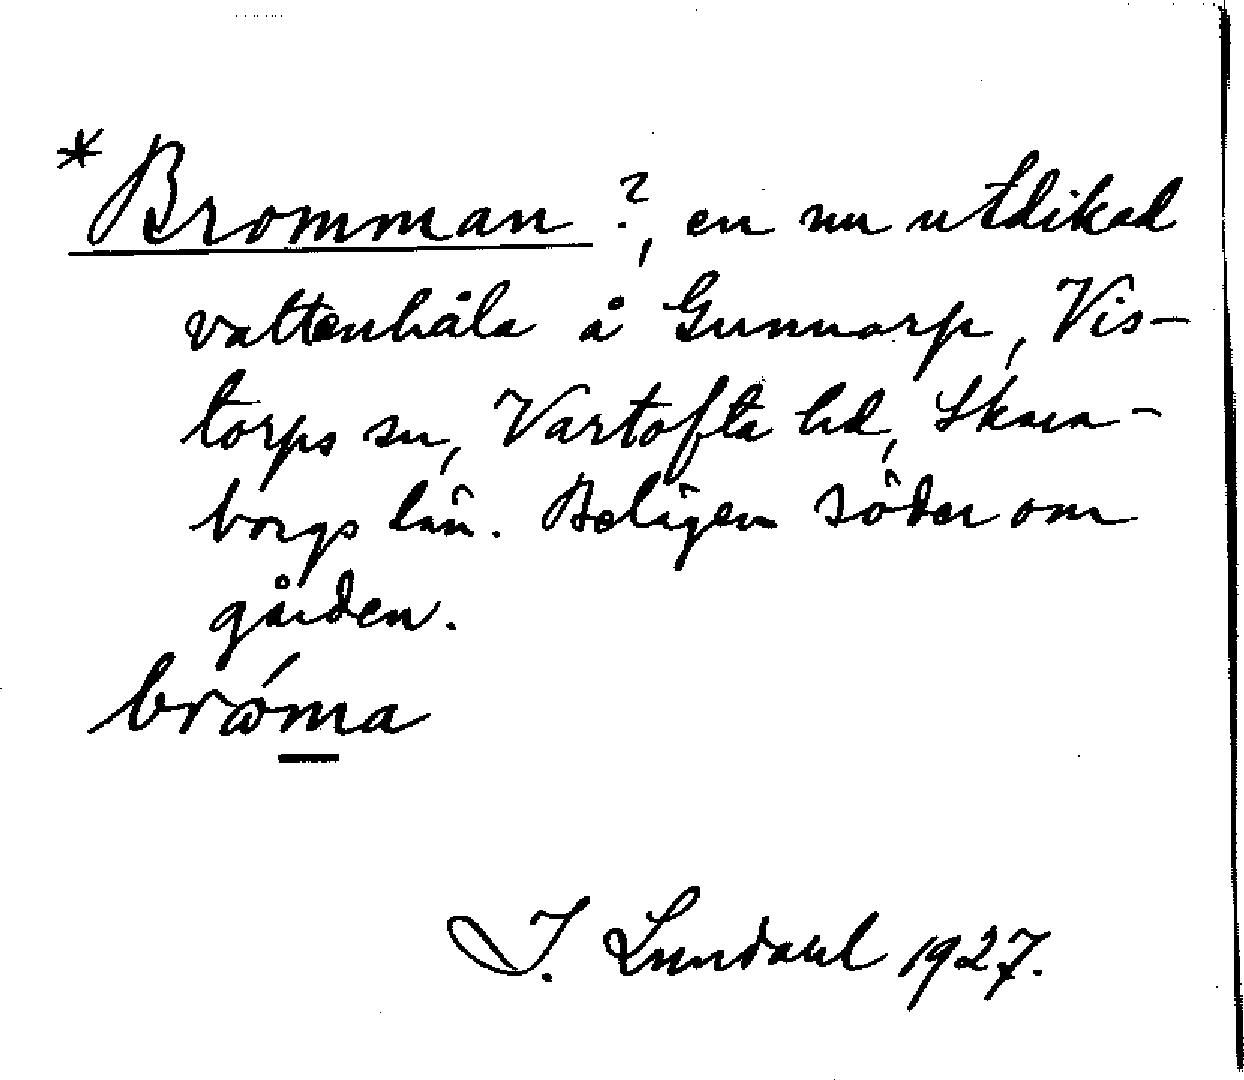 *Bromman ?, en nu utdikad
vattenhåla å Gunnarp, Vis-
torps sn, Vartofta hd, Skara-
borgs län. Belägen söder om
gården.
brǿma
I. Lundahl 1927.